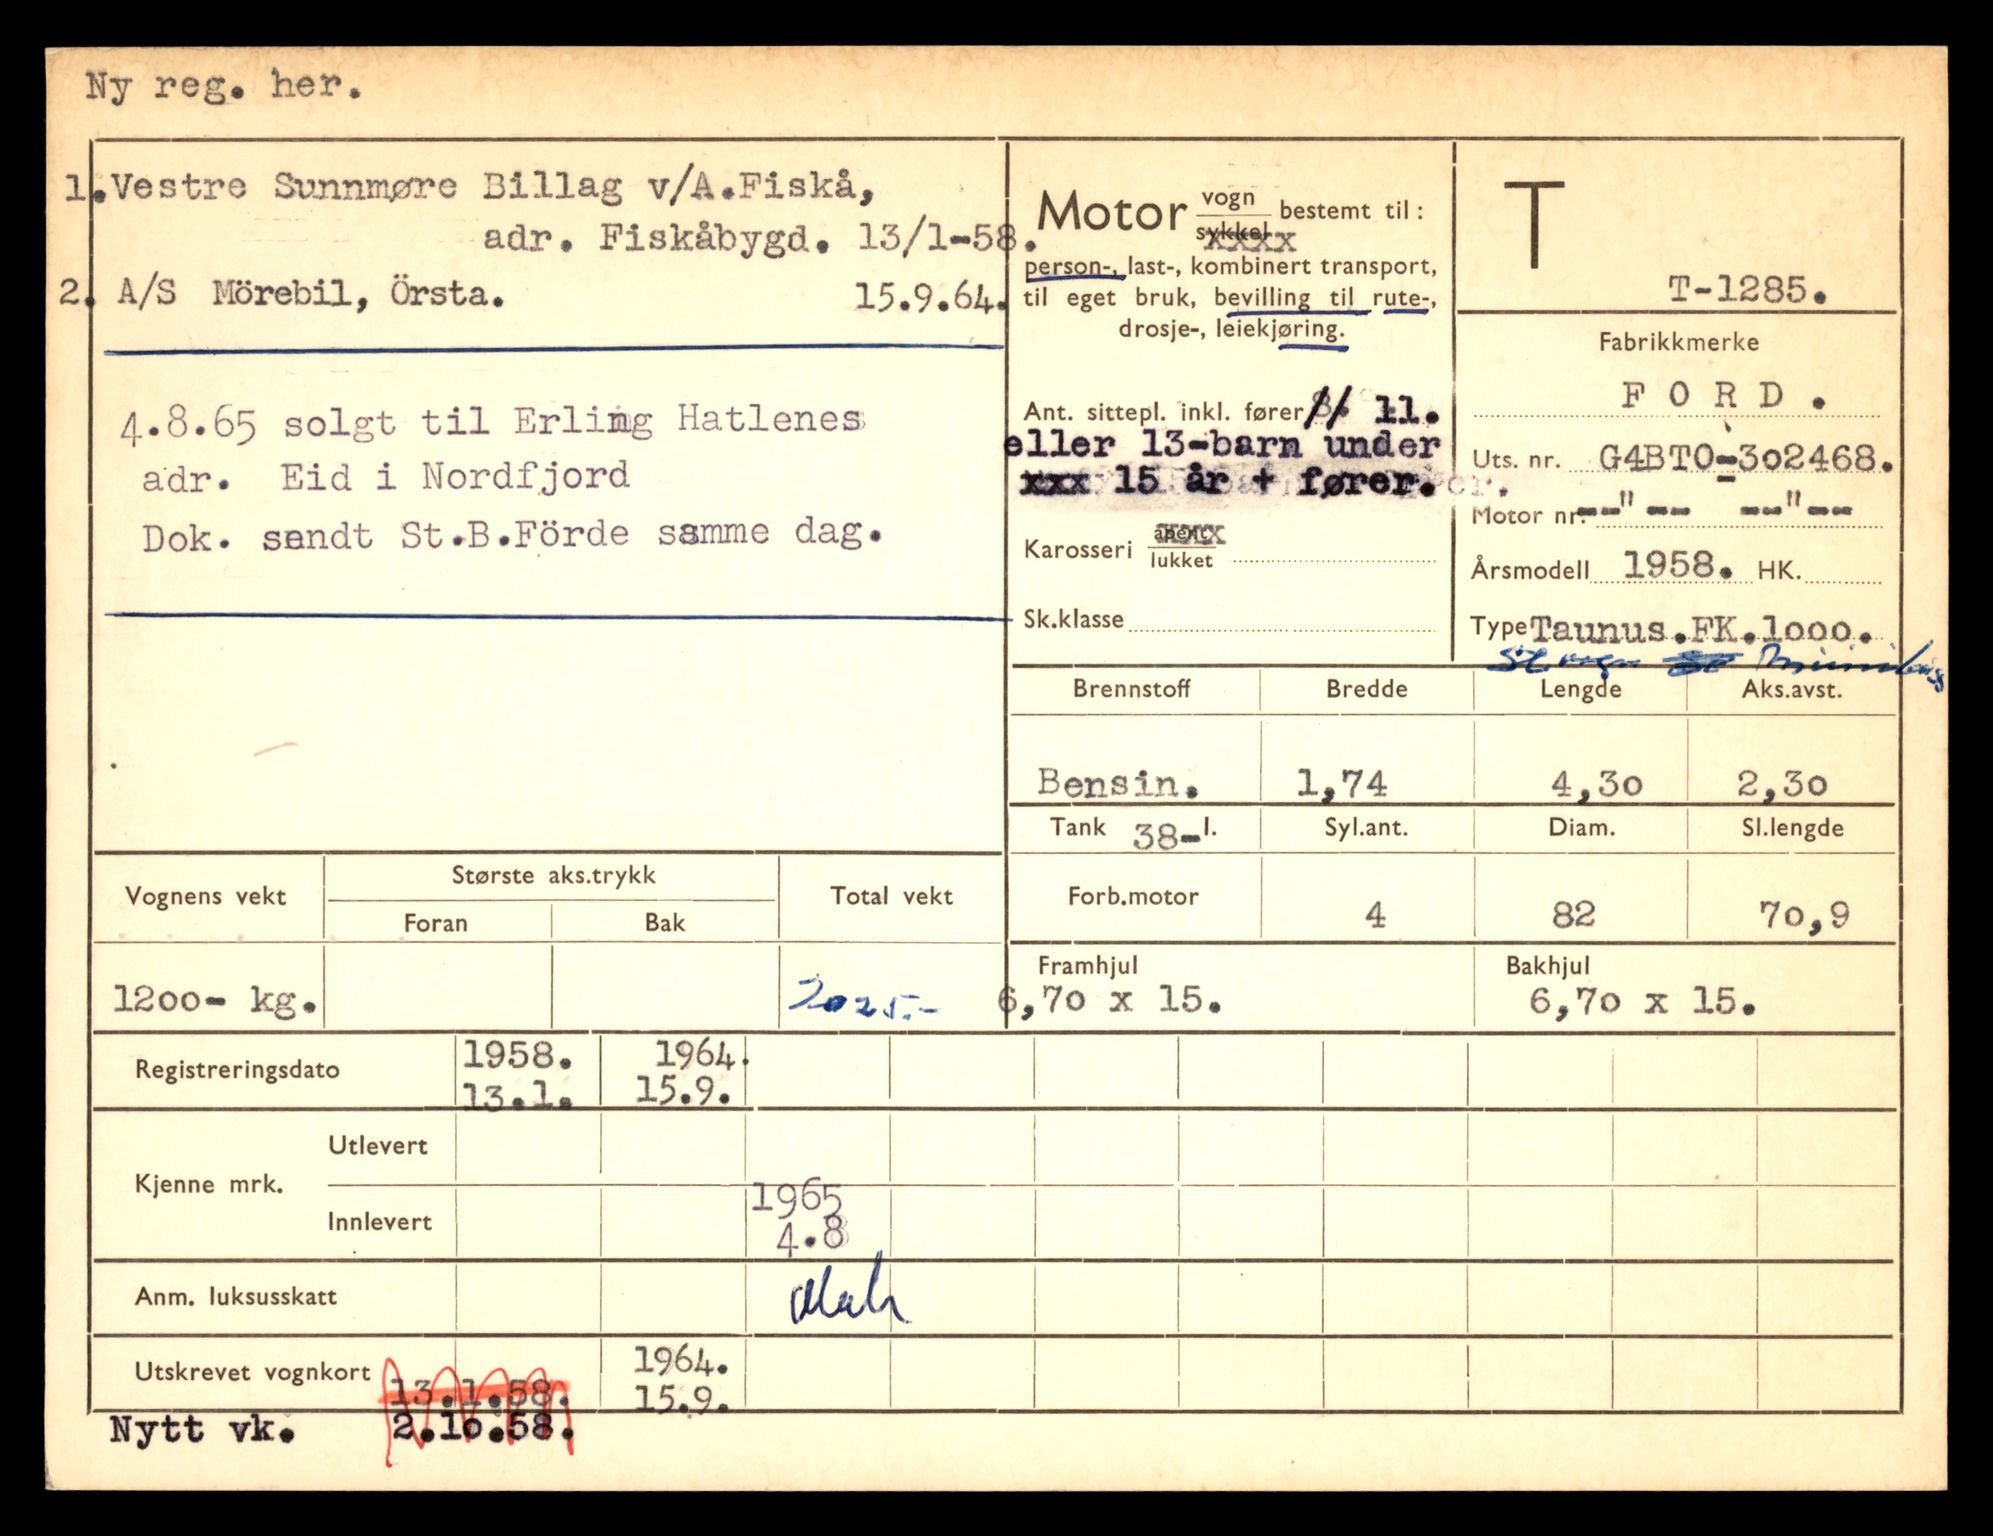 Ny reg. her.
1. Vestre Sunnmøre Billag v/A.Fiskå,
adr. Fiskåbygd. 13/1-58.
2. A/S Mörebil, Örsta. 15.9.64.
4.8.65 solgt til Erling Hatlenes
adr. Eid i Nordfjord
Dok. sendt St.B.Förde samme dag.
Motor vogn sykkel xxxx bestemt til:
person-, last-, kombinert transport,
til eget bruk, bevilling til rute-,
drosje-, leiekjøring.
Ant. sittepl. inkl. fører 8. // 11.
eller 13-barn under
xxx 15 år + fører.
Karosseri åpent xxxx lukket
Sk.klasse
T
T-1285.
Fabrikkmerke
FORD.
Uts. nr. G4BTO-302468.
Motor nr. --"-- --"--
Årsmodell 1958. HK.
Type Taunus.FK.1000.
St.vogn Minibuss
Brennstoff Bredde Lengde Aks.avst.
Bensin. 1,74 4,30 2,30
Tank 38-l. Syl.ant. Diam. Sl.lengde
Forb.motor 4 82 70,9
Framhjul Bakhjul
6,70 x 15. 6,70 x 15.
Vognens vekt Største aks.trykk Total vekt
Foran Bak
1200- kg. 2025.-
Registreringsdato 1958. 1964.
13.1. 15.9.
Kjenne mrk. Utlevert
Innlevert 1965
4.8
Anm. luksusskatt
Utskrevet vognkort 13.1.58. 1964.
15.9.
Nytt vk. 2.10.58.